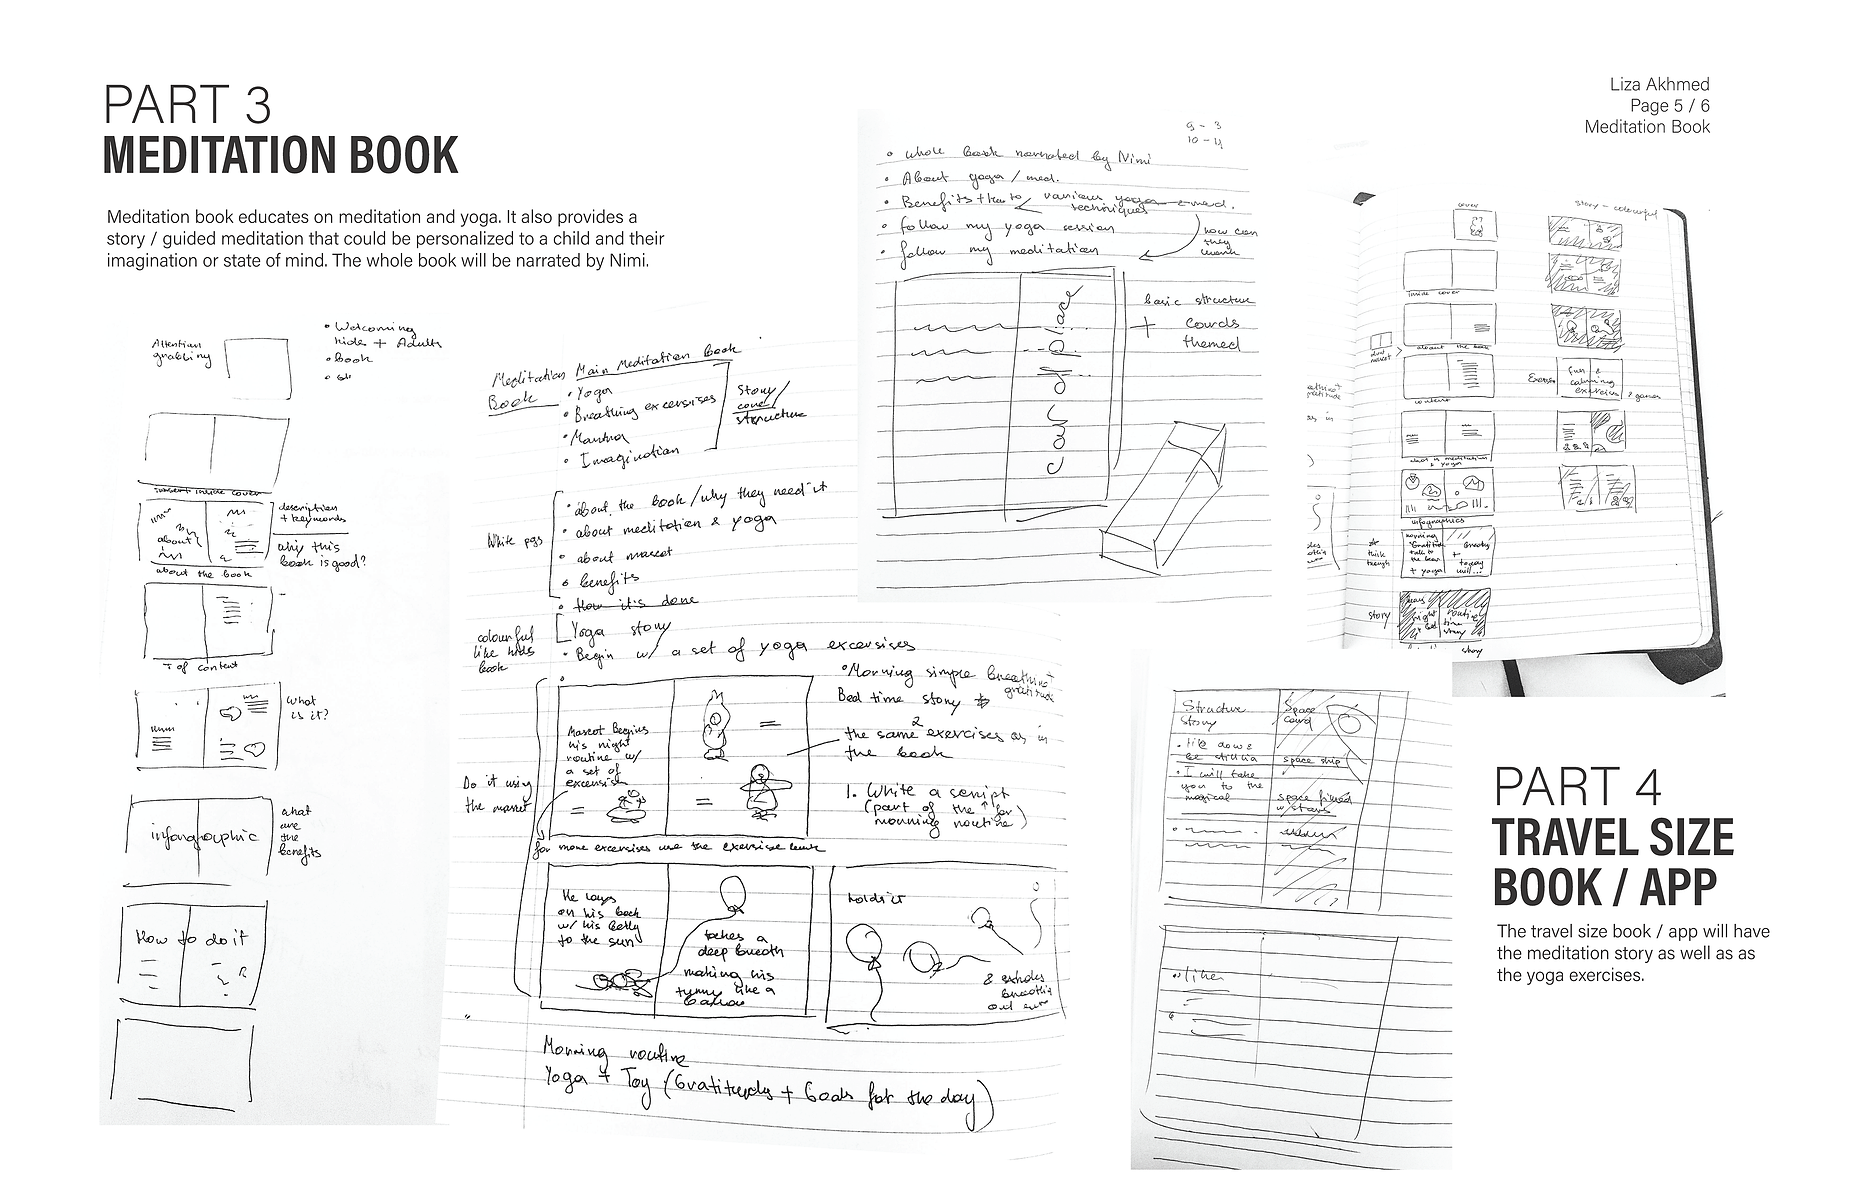 PART 3
MEDITATION BOOK
Meditation book educates on meditation and yoga. It also provides a
story / guided meditation that could be personalized to a child and their
imagination or state of mind. The whole book will be narrated by Nimi.
Liza Akhmed
Page 5 / 6
Meditation Book
Attention
grabbing
• Welcoming
kids + Adults
• Book
inside cover
about
description
+ keywords
why this
book is good?
about the book
T of content
What
is it?
what
are
the
benefits
How to do it
Meditation
Book
Main Meditation Book
• Yoga
• Breathing excersises
• Mantra
• Imagination
Story/
structure
White pgs
• about the book/why they need it
• about meditation & yoga
• about mascot
• benefits
• How it's done
colourful
like kids
book
Yoga story
• Begin w/ a set of yoga excersises
Do it using
the mascot
Mascot Begins
his night
routine w/
a set of
excersise
• Morning simple breathing +
gratitude
Bed time story
the same 2 exercises as in
the book
1. Write a script
(part of the ↑ for
morning routine)
for more excersises use the exercise
He lays
on his back
w/ his belly
to the sun
takes a
deep breath
making his
tummy like a
holds it
& exhales
Morning routine
Yoga + Toy (Gratitude + Goals for the day)
9 - 3
10 - 4
• whole book narrated by Nimi
• About yoga / med.
• Benefits
various yoga
techniques
• follow my yoga session
• follow my meditation
how can
they
basic structure
+ cards
themed
card place
cover
story - colourful
inside cover
about the book
content
Exercise
fun &
calming
exercises
what is meditation
& yoga
infographics
think
through
+ yoga
story
Structure
story
Space
card
space ship
• I will take
you to the
magical
PART 4
TRAVEL SIZE
BOOK / APP
The travel size book / app will have
the meditation story as well as as
the yoga exercises.